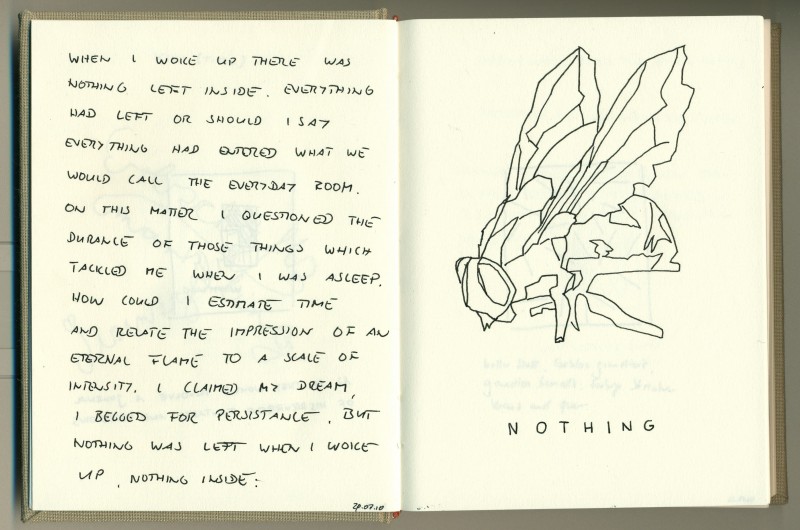 WHEN I WOKE UP THERE WAS
NOTHING LEFT INSIDE. EVERYTHING
HAD LEFT OR SHOULD I SAY
EVERYTHING HAD ENTERED WHAT WE
WOULD CALL THE EVERYDAY ROOM.
ON THIS MATTER I QUESTIONED THE
DURANCE OF THOSE THINGS WHICH
TACKLED ME WHEN I WAS ASLEEP.
HOW COULD I ESTIMATE TIME
AND RELATE THE IMPRESSION OF AN
ETERNAL FLAME TO A SCALE OF
INTENSITY. I CLAIMED MY DREAM,
I BEGGED FOR PERSISTANCE. BUT
NOTHING WAS LEFT WHEN I WOKE
UP, NOTHING INSIDE:
NOTHING